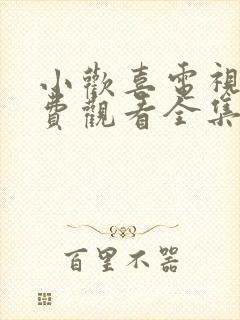 小歡喜電視
費觀看全集
百里不器